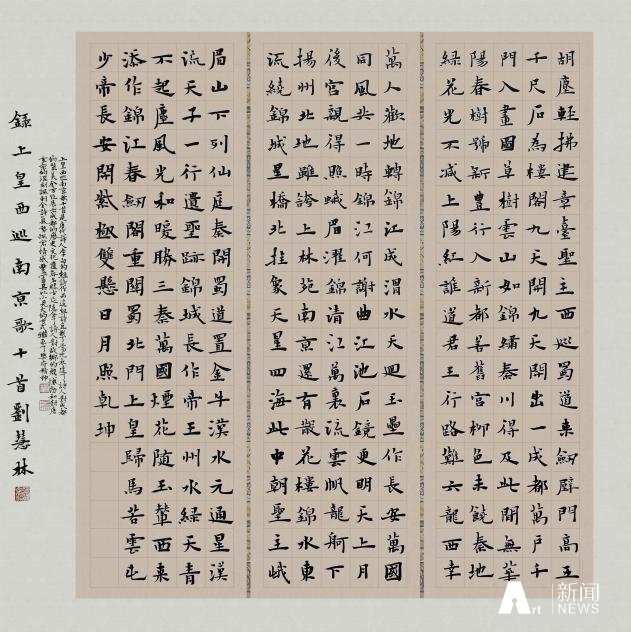 胡塵輕拂建章臺聖主西巡蜀道來劍壁門高五
千尺石為樓閣九天開九天開出一成都萬戶千
門入畫圖草樹雲山如錦繡秦川得及此間無華
陽春樹號新豐行入新都若舊宮柳色未饒秦地
綠花光不減上陽紅誰道君王行路難六龍西幸
萬人歡地轉錦江成渭水天迴玉壘作長安萬國
同風共一時錦江何謝曲江池石鏡更明天上月
後宮親得照蛾眉濯錦清江萬里流雲帆龍舸下
揚州北地雖誇上林苑南京還有散花樓錦水東
流繞錦城星橋北挂象天星四海此中朝聖主峨
眉山下列仙庭秦開蜀道置金牛漢水元通星漢
流天子一行遺聖跡錦城長作帝王州水綠天青
不起塵風光和暖勝三秦萬國煙花隨玉輦西來
添作錦江春劍閣重關蜀北門上皇歸馬若雲屯
少帝長安開紫極雙懸日月照乾坤
錄上皇西巡南京歌十首劉慧林
Art 新闻
NEWS